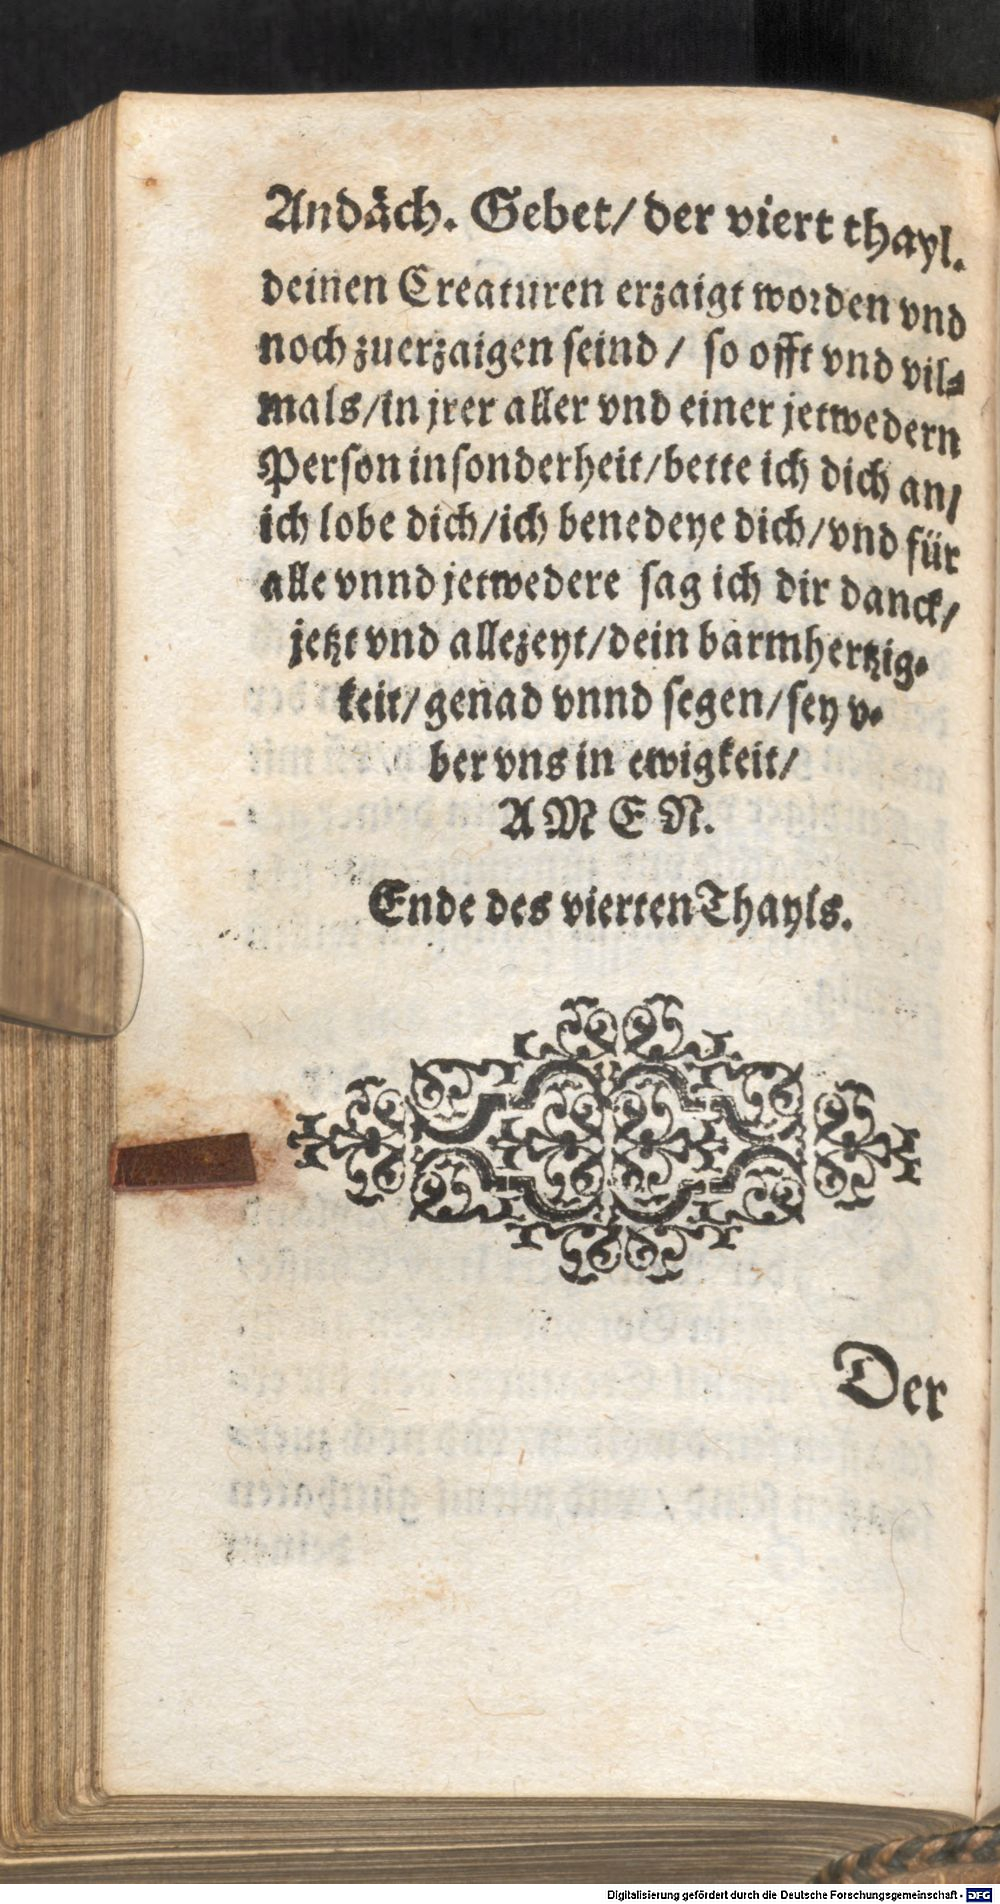 Andäch. Gebet/ der viert thayl.
deinen Creaturen erzaigt worden vnd
noch zuerzaigen seind / so offt vnd vil⸗
mals/in jrer aller vnd einer jetwedern
Person insonderheit/bette ich dich an/
ich lobe dich/ich benedeye dich/vnd für
alle vnnd jetwedere sag ich dir danck/
jetzt vnd allezeyt/dein barmhertzig⸗
keit/genad vnnd segen/sey v⸗
ber vns in ewigkeit/
AMEN.
Ende des vierten Thayls.
Der
Digitalisierung gefördert durch die Deutsche Forschungsgemeinschaft - DFG